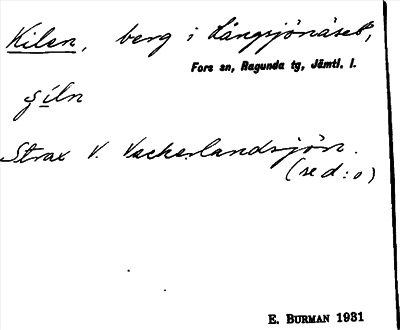 Kilen, berg i Långsjönäset,
Fors sn, Ragunda tg, Jämtl. l.
çiln
Strax V. Vackerlandsjön.
(se d:o)
E. BURMAN 1931